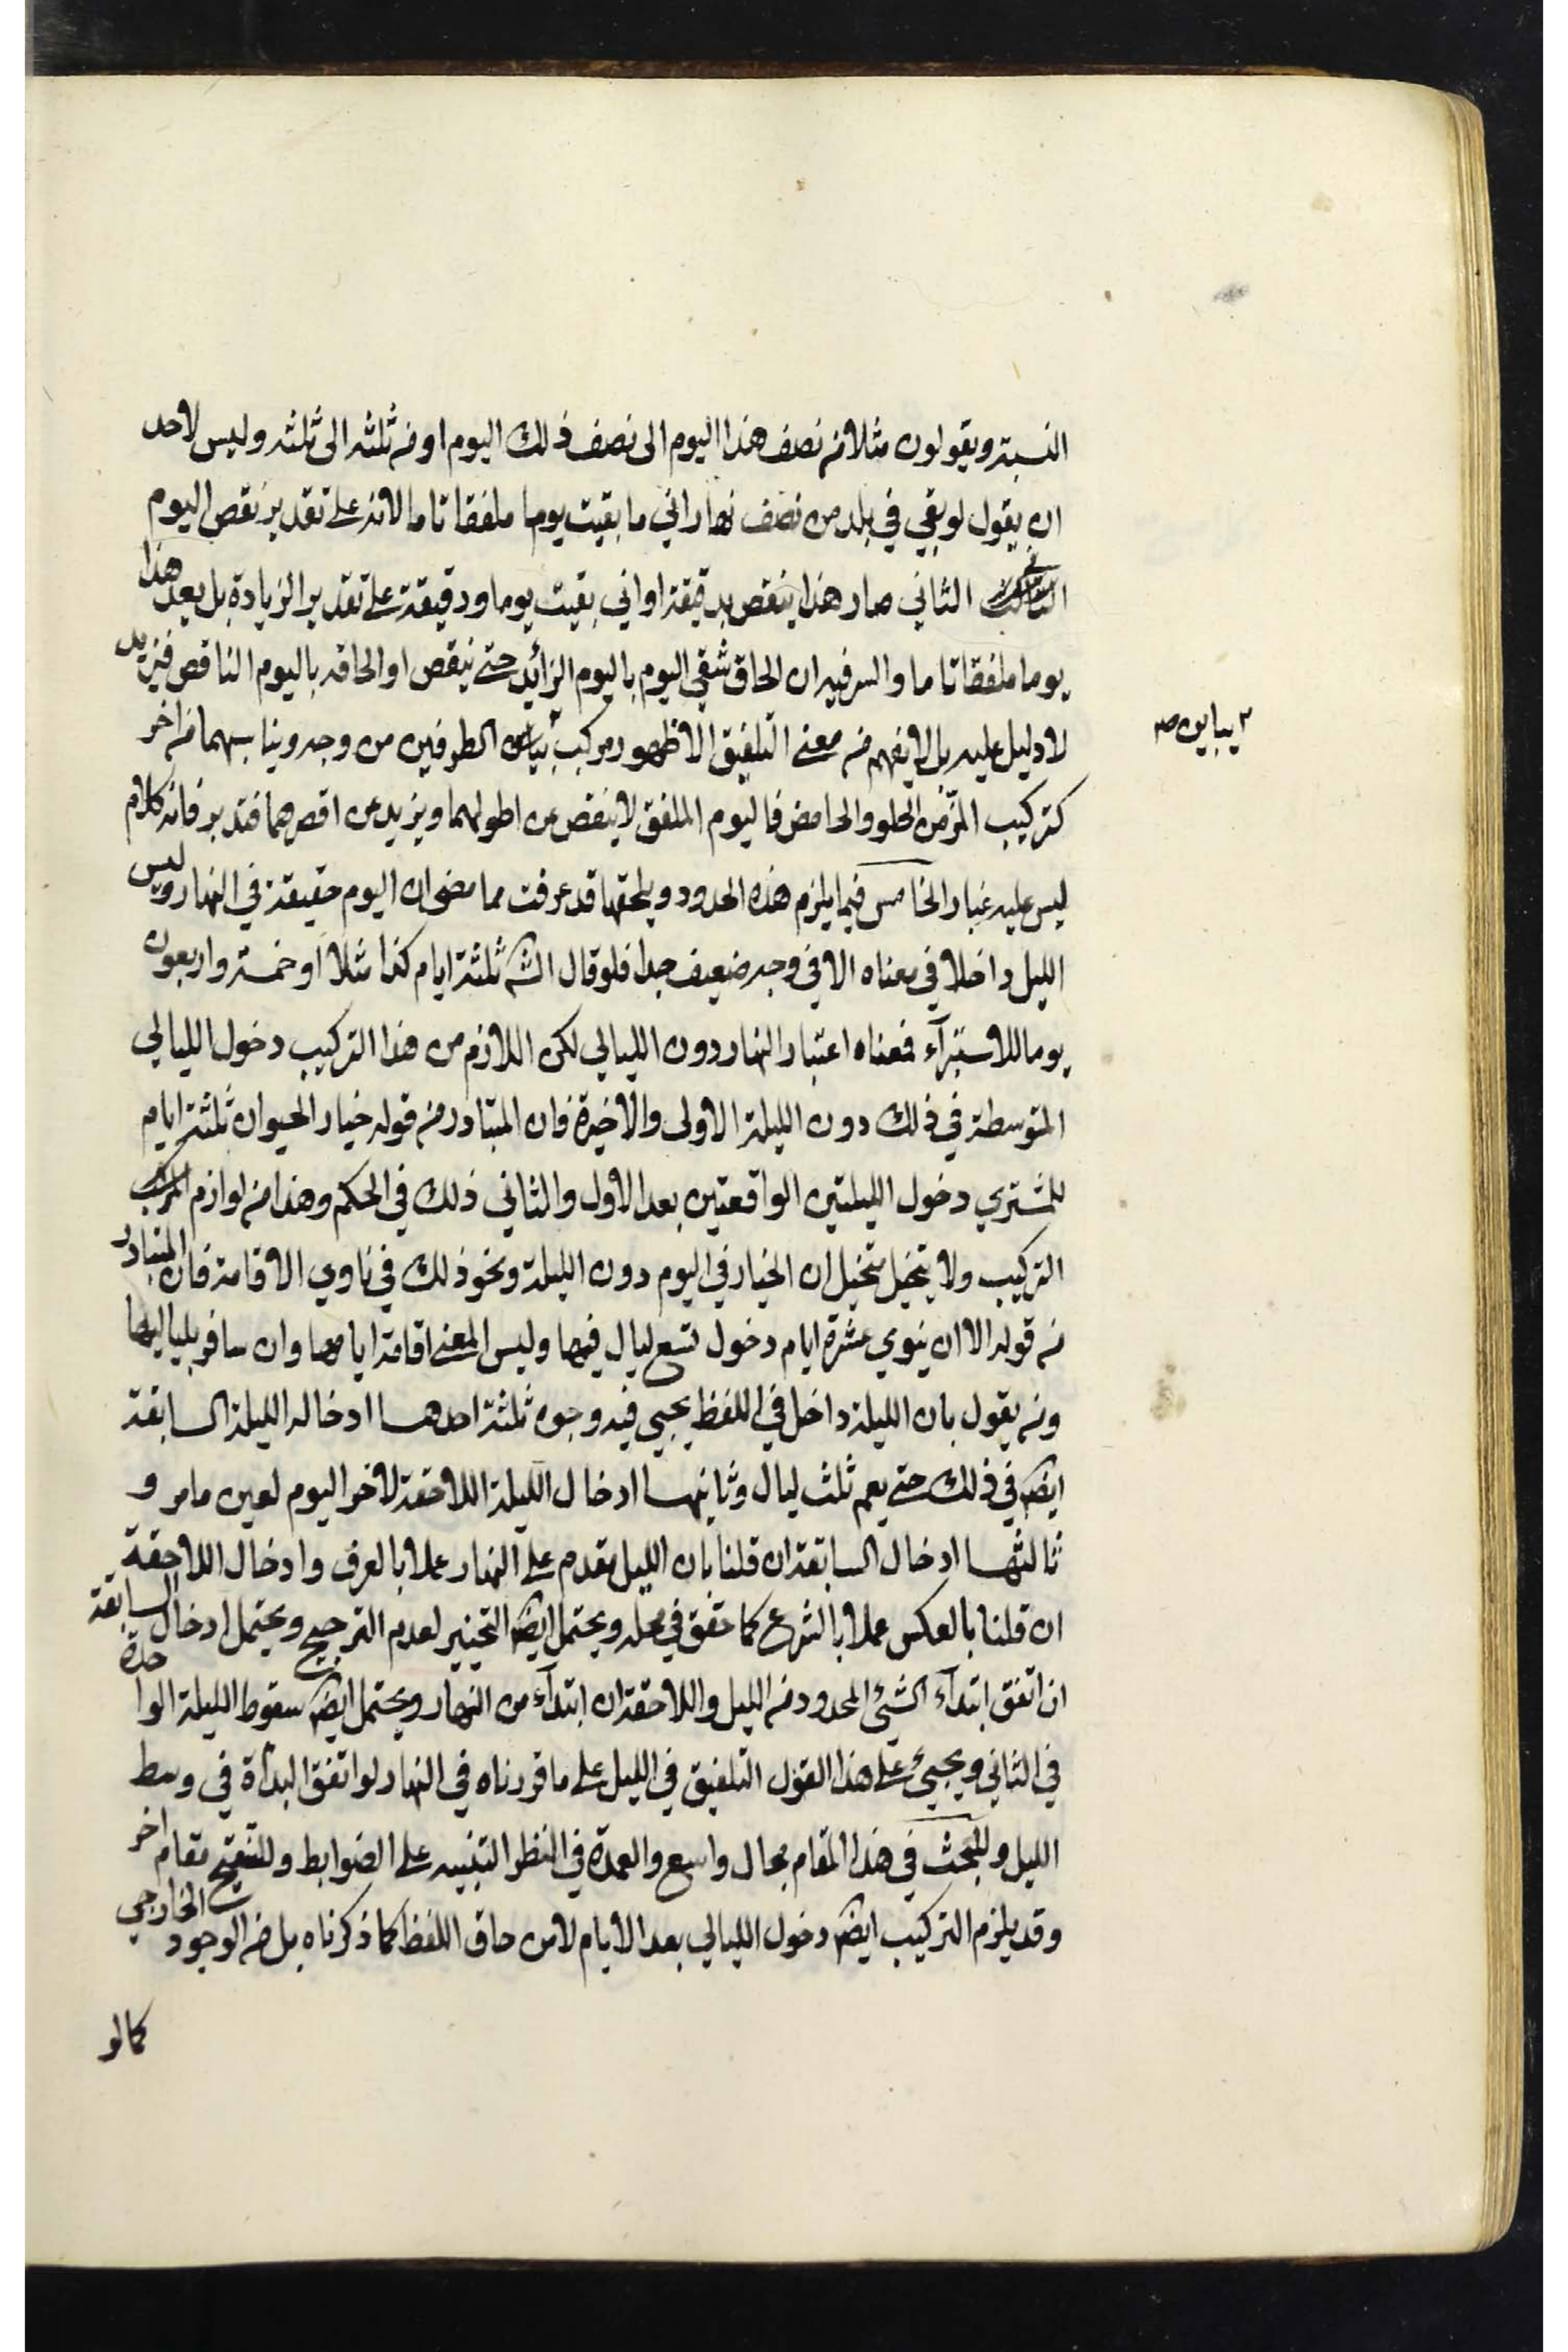 النسبة ويقولون مثلا من نصف هذا اليوم الى نصف ذلك اليوم او من ثلثه الى ثلثه وليس لاحد
ان يقول لو بقي في بلد من نصف نهار اني ما بقيت يوما ملفقا تاما لانه على تقدير نقص اليوم
الثاني صار هذا ينقص بدقيقة او اني بقيت يوما ودقيقة على تقدير الزيادة بل يعد هذا
يوما ملفقا تاما والسر فيه ان الحاق شقي اليوم باليوم الزائد حتى ينقص او الحاقه باليوم الناقص فيزيد
لا دليل عليه بل لا يفهم من معنى التلفيق الا ظهور مركب يباين الطرفين من وجه ويناسبهما من اخر
٢ يباين صح
كتركيب المز من الحلو والحامض فاليوم الملفق لا ينقص عن اطولهما ويزيد عن اقصرهما فتدبر فانه كلام
ليس عليه غبار الخامس فيما يلزم هذه الحدود ويلحقها قد عرفت مما مضى ان اليوم حقيقة في النهار وليس
الليل داخلا في معناه الا في وجه ضعيف جدا فلو قال الش ثلثة ايام كذا مثلا او خمسة واربعون
يوما للاستبرآء فمعناه اعتبار النهار دون الليالي لكن اللازم من هذا التركيب دخول الليالي
المتوسطة في ذلك دون الليلة الاولى والاخيرة فان المتبادر من قوله خيار الحيوان ثلثة ايام
للمشتري دخول الليلتين الواقعتين بعد الاول والثاني ذلك في الحكم وهذا من لوازم
التركيب ولا يتخيل متخيل ان الخيار في اليوم دون الليلة ونحو ذلك في ناوي الاقامة فان المتبادر
من قوله الا ان ينوي عشرة ايام دخول تسع ليال فيها وليس المعنى اقامة ايامها وان سافر بلياليها
ومن يقول بان الليلة داخل في اللفظ يجيي فيه وجوه ثلثة احدها ادخاله الليلة السابقة
ايضا في ذلك حتى يعم ثلث ليال وثانيها ادخال الليلة اللاحقة لاخر اليوم لعين ما مر و
ثالثها ادخال السابقة ان قلنا بان الليل مقدم على النهار عملا بالعرف وادخال اللاحقة
ان قلنا بالعكس عملا بالشرع كما حقق في محله ويحتمل ايضا التخيير لعدم الترجيح ويحتمل ادخال السابقة
ان اتفق ابتدآء الشئ المحدود من الليل واللاحقة ان ابتدآء من النهار ويحتمل ايضا سقوط الليلة الواحدة
في الثاني ويجيئ على هذا القول التلفيق في الليل على ما قررناه في النهار لو اتفق البدأة في وسط
الليل وللبحث في هذا المقام مجال واسع والعمدة في النظر التنبيه على الضوابط وللتنقيح مقام اخر
وقد يلزم التركيب ايضا دخول الليالي بعد الايام لا من حاق اللفظ كما ذكرناه بل من الوجود الخارجي
كما لو